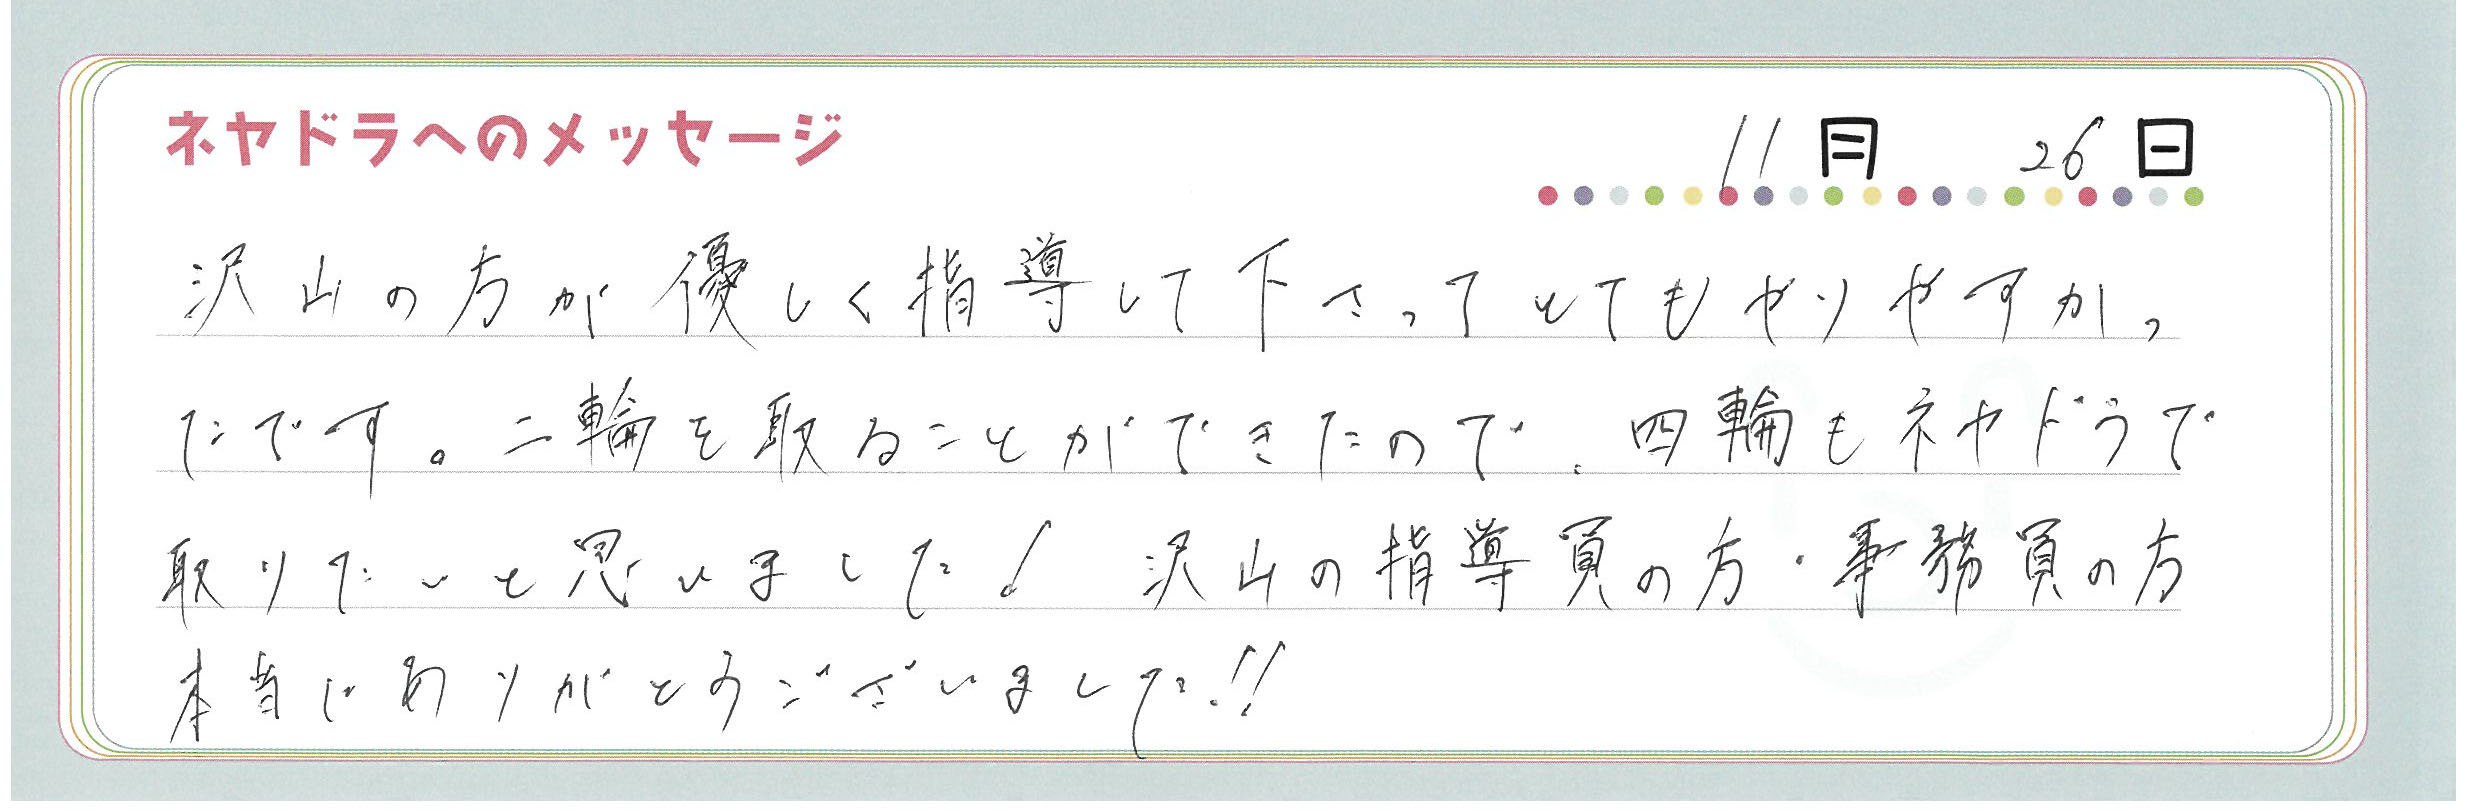 ネヤドラへのメッセージ
11月 26日
沢山の方が優しく指導して下さってとてもやりやすかっ
たです。二輪を取ることができたので、四輪もネヤドラで
取りたいと思いました! 沢山の指導員の方・事務員の方
本当にありがとうございました!!